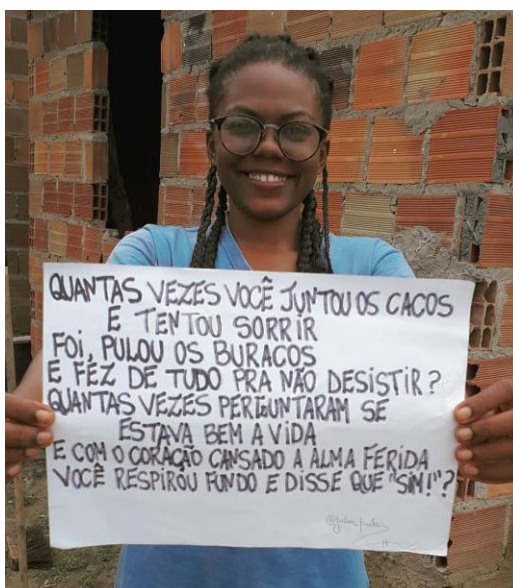 QUANTAS VEZES VOCÊ JUNTOU OS CACOS
E TENTOU SORRIR
FOI, PULOU OS BURACOS
E FEZ DE TUDO PRA NÃO DESISTIR?
QUANTAS VEZES PERGUNTARAM SE
ESTAVA BEM A VIDA
E COM O CORAÇÃO CANSADO A ALMA FERIDA
VOCÊ RESPIROU FUNDO E DISSE QUE "SIM!"?